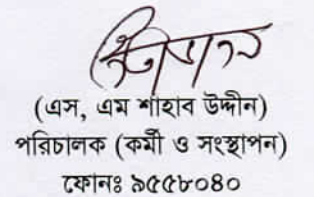 (এস, এম শাহাব উদ্দীন)
পরিচালক (কর্মী ও সংস্থাপন)
ফোনঃ ৯৫৫৮০৪০